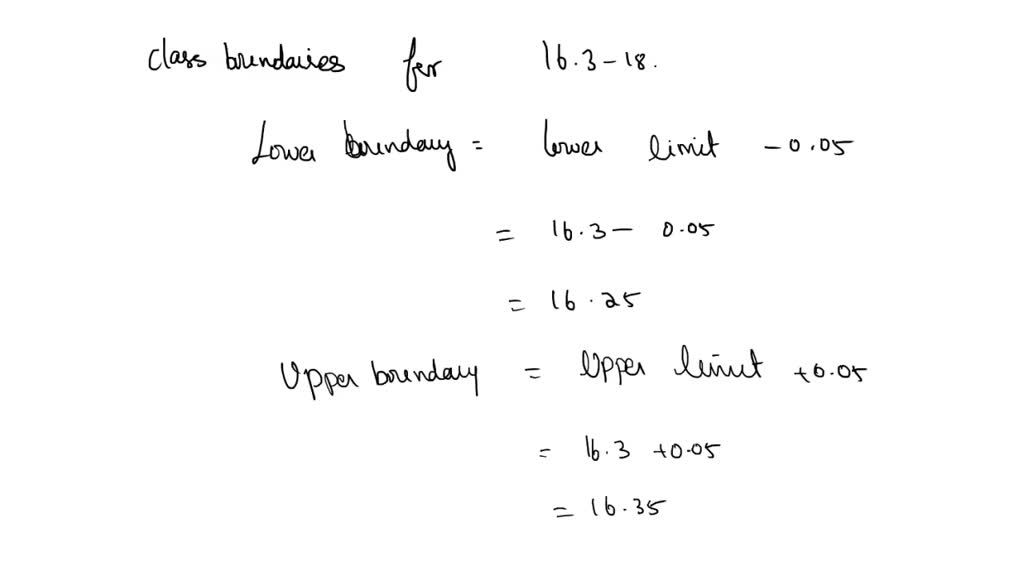 class boundaries for 16.3-18.
Lower boundary = lower limit -0.05
= 16.3- 0.05
= 16.25
Upper boundary = Upper limit +0.05
= 16.3 +0.05
= 16.35